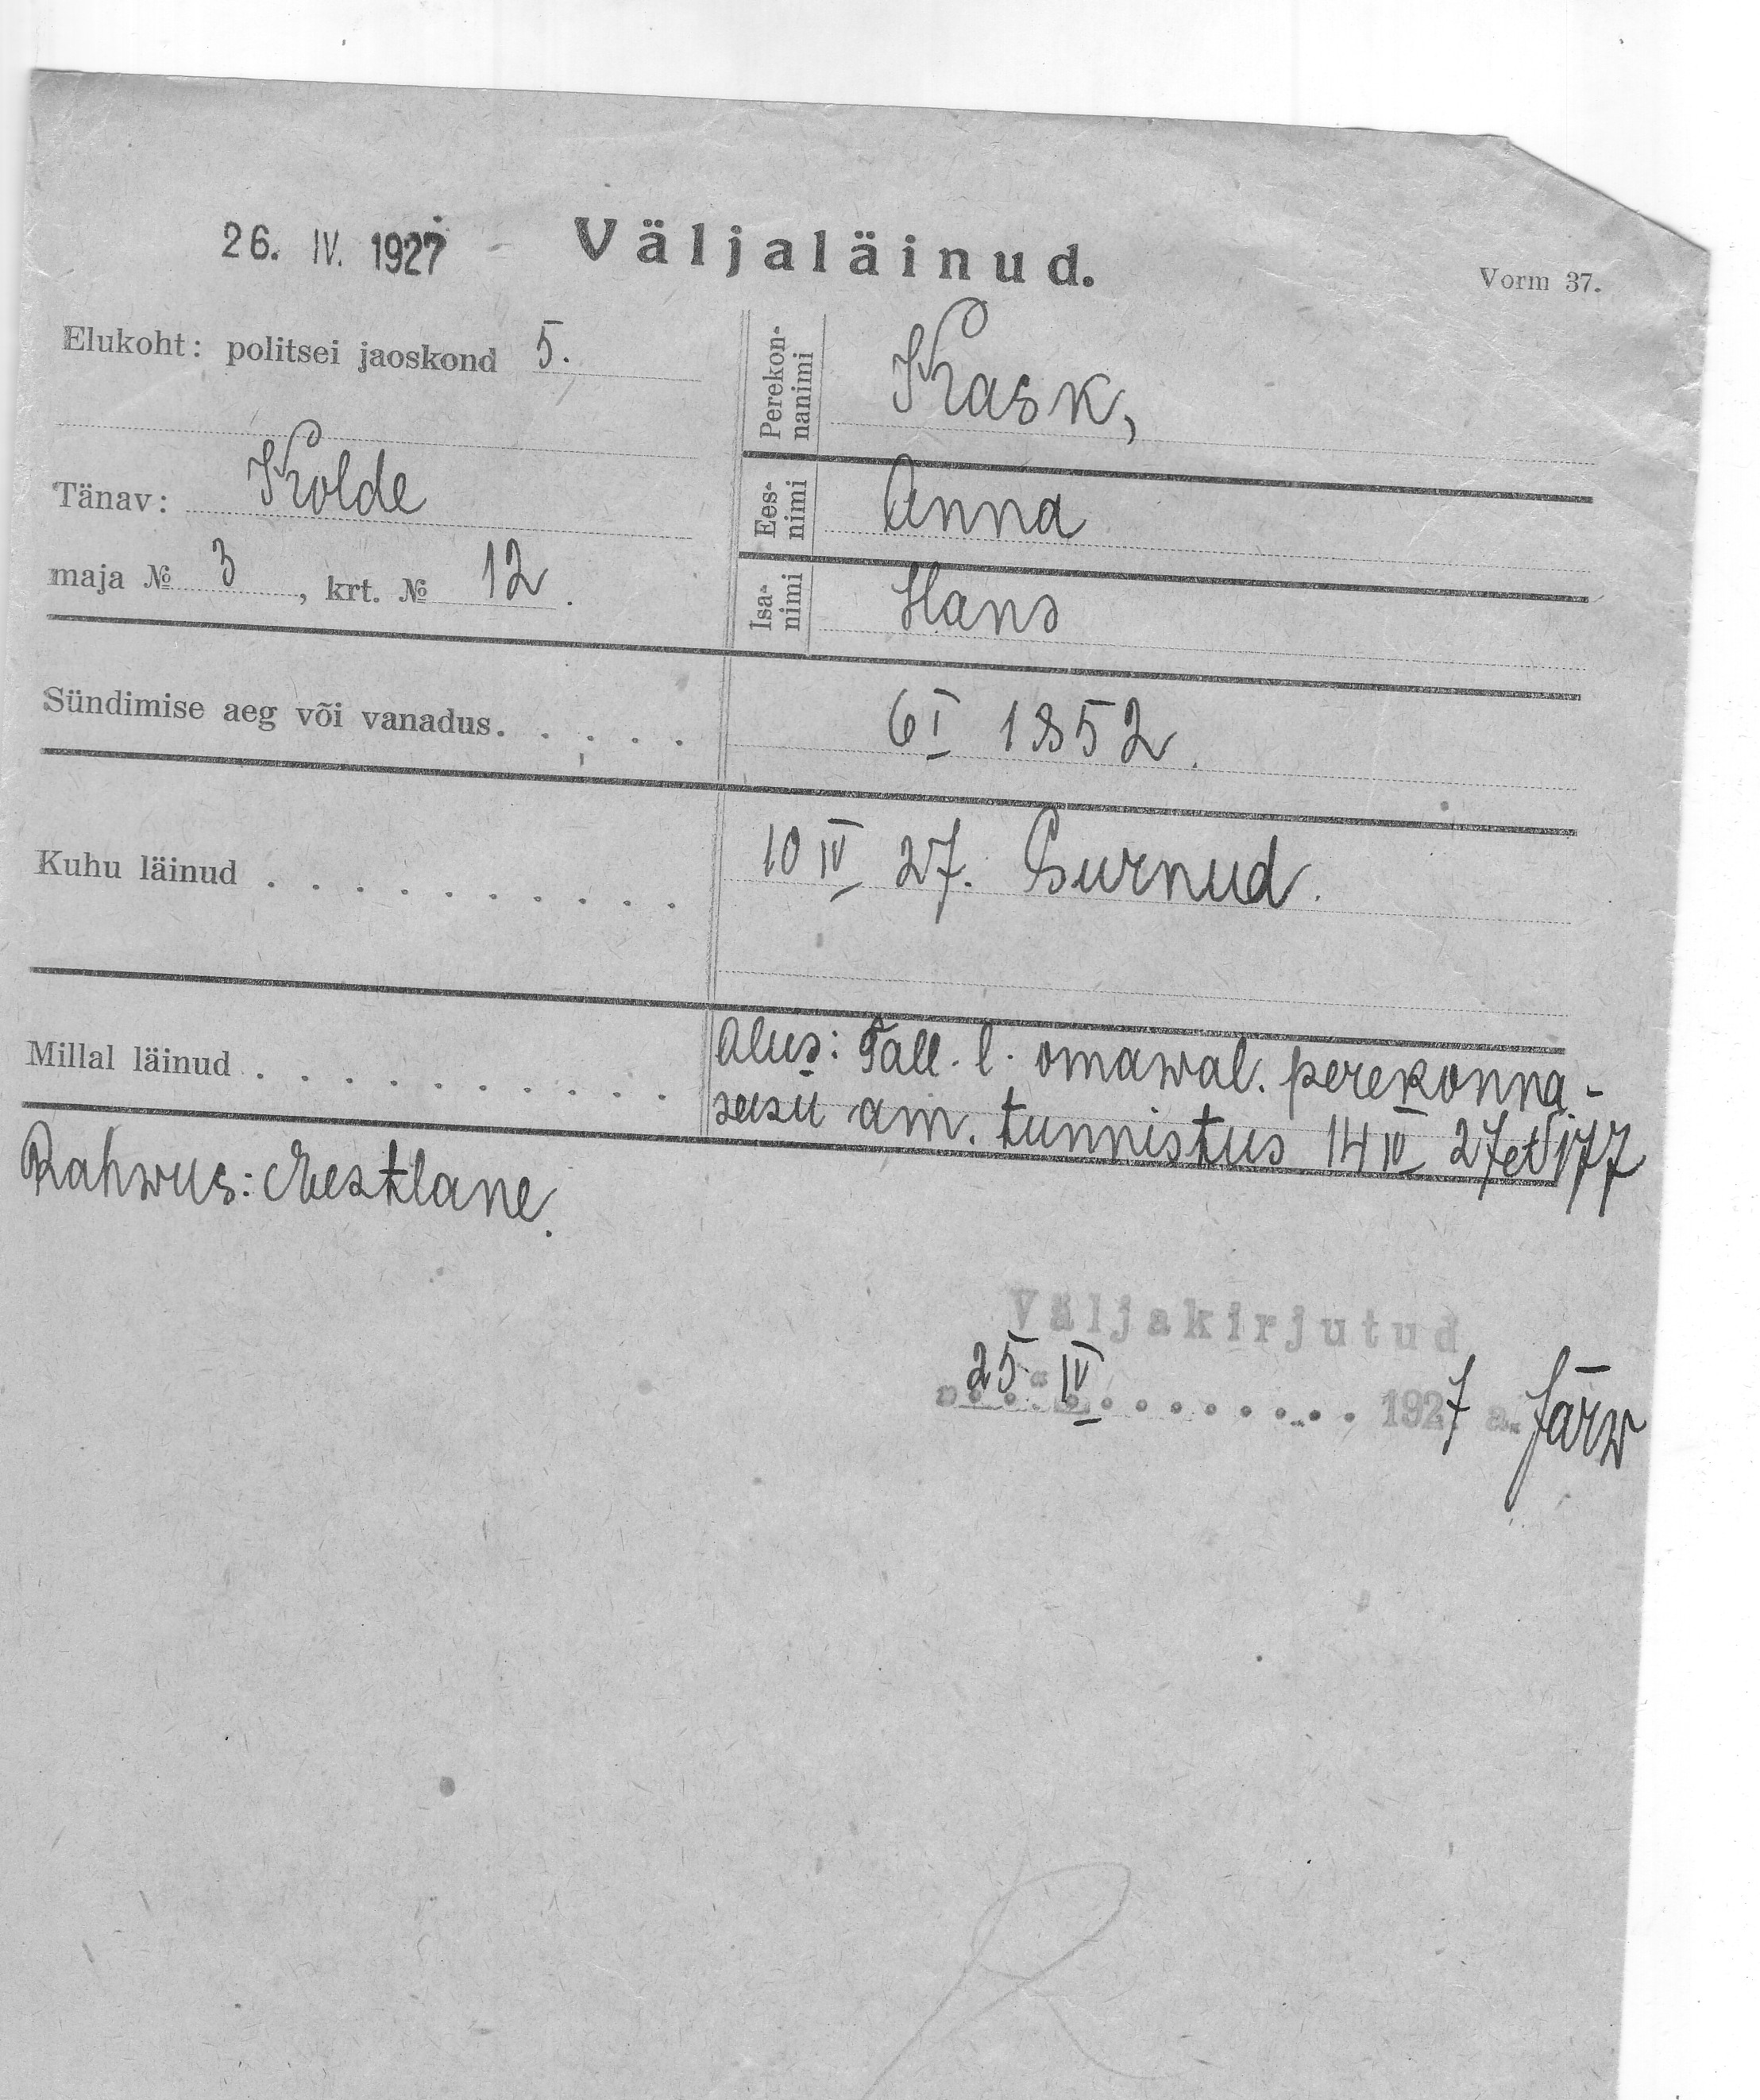 26. IV. 1927
Väljaläinud.
Vorm 37.
Elukoht: politsei jaoskond 5.
Tänav: Kolde
maja № 3, krt. № 12.
Perekon-
nanimi
Kask,
Ees-
nimi
Anna
Isa-
nimi
Hans
Sündimise aeg või vanadus. . . . . .
6 I 1852.
Kuhu läinud . . . . . . . . . .
10 IV 27. Surnud.
Millal läinud . . . . . . . . . .
Alus: Tall. l. omawal. perekonna-
seisu am. tunnistus 14 IV 27 177
Rahwus: Eestlane.
Väljakirjutud
"25" IV . . . . . . . . 1927 a. Järw